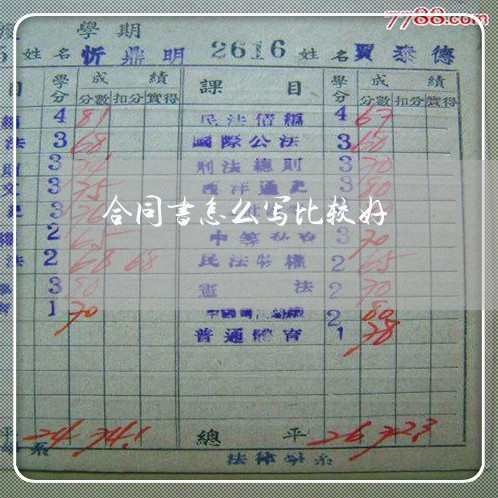 7788.com
學期
5 姓名 忻鼎明 2616 姓名 賈泰德
目 學分 成績 課目 學分 成績
分數 扣分 實得 分數 扣分 實得
4 81 民法債編 4 67
法 3 68 國際公法 3 60
3 刑法總則 3 70
3 75 西洋通史 3 80
合同書怎么写比较好
2 65 3 70
法 2 68 68 民法物權 2 65
3 80 憲法 2 70
1 70 2 80
普通體育 1 78
平 24 74.1 總平 26 72.3
系 法律學系